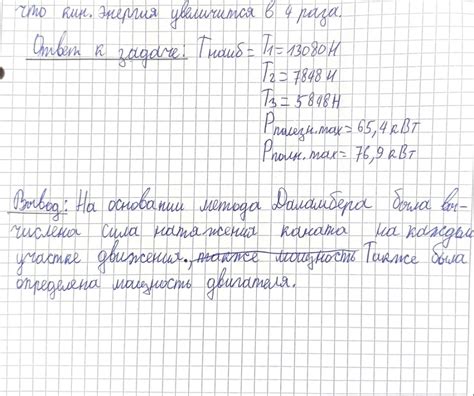 что кин. энергия увеличится в 4 раза.
Ответ к задаче: Tнаиб = T₁ = 13080 Н
T₂ = 7848 Н
T₃ = 5848 Н
Pполезн.max = 65,4 кВт
Pполн.max = 76,9 кВт
Вывод: На основании метода Даламбера была вы-
числена сила натяжения каната на каждом
участке движения., также мощность Также была
определена мощность двигателя.